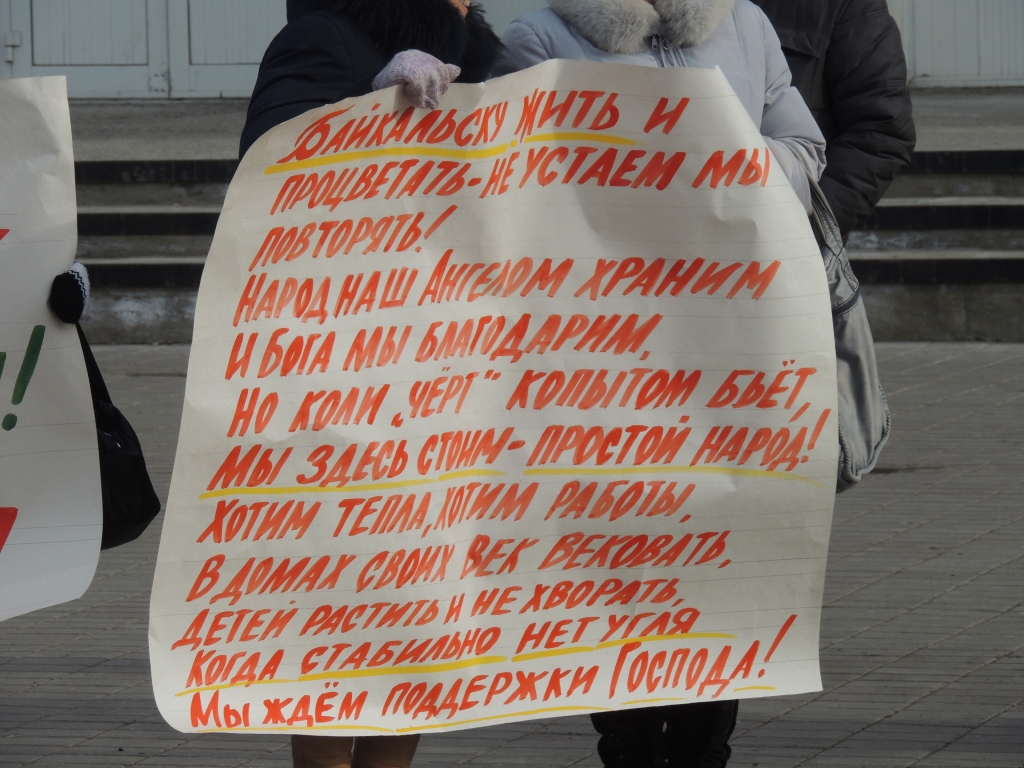 Байкальску жить и
процветать - не устаем мы
повторять!
Народ наш Ангелом храним
И Бога мы благодарим,
Но коли „чёрт" копытом бьёт,
Мы здесь стоим - простой народ!
Хотим тепла, хотим работы,
В домах своих век вековать,
Детей растить и не хворать,
Когда стабильно нет угля
Мы ждём поддержки Господа!
!